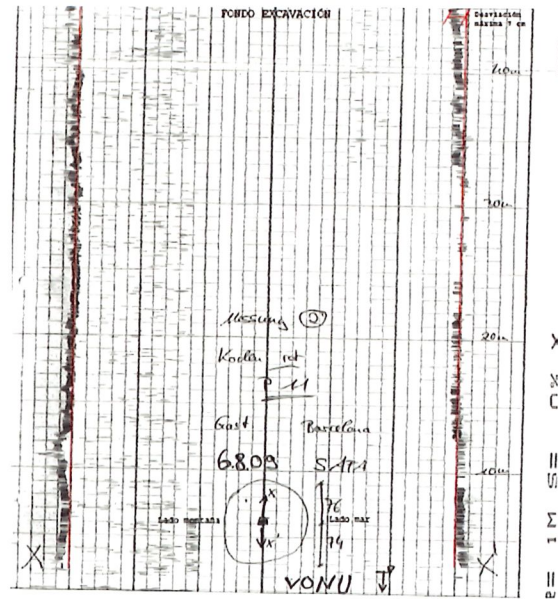 FONDO EXCAVACIÓN
Desviación
máxima 7 cm
40m
30m
20m
10m
Messung ②
Koden rot
P 11
Gast Barcelona
6.8.09 SATA
X
X'
76
74
Lado montaña
Lado mar
X
X'
VONU
R= 1M S= 0% X